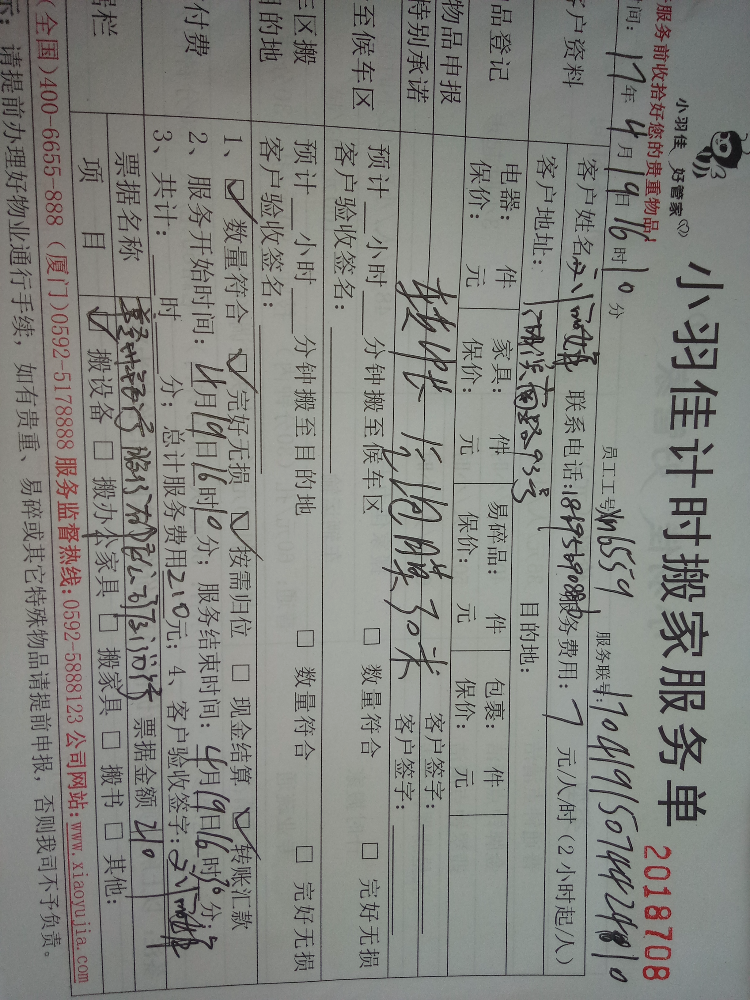 小羽佳 好管家
小羽佳计时搬家服务单
2018708
服务前收拾好您的贵重物品!
时间: 17年4月19日16时10分 员工工号 xm6559 服务联号:
户资料 客户姓名 联系电话: 服务费用: 7 元/人/时(2小时起/人)
客户地址: 目的地:
品登记 电器: 件 家具: 件 易碎品: 件 包裹: 件
保价: 元 保价: 元 保价: 元 保价: 元
物品申报 客户签字:
特别承诺 30米 客户签字:
至候车区 预计__小时__分钟搬至候车区 □ 数量符合 □ 完好无损
客户验收签名:
区搬 预计__小时__分钟搬至目的地 □ 数量符合 □ 完好无损
目的地 客户验收签名:
付费 1、☑ 数量符合 ☑ 完好无损 ☑ 按需归位 □ 现金结算 ☑ 转账汇款
2、服务开始时间: 4月19日16时10分; 服务结束时间: 4月19日16时 分;
3、共计:__时__分; 总计服务费用210元; 4、客户验收签字:
据栏 票据名称 票据金额 210
项 目 ☑ 搬设备 □ 搬办公家具 □ 搬家具 □ 搬书 □ 其他:
(全国)400-6655-888 (厦门)0592-5178888 服务监督热线:0592-5888123 公司网站:www.xiaoyujia.com
示: 请提前办理好物业通行手续, 如有贵重、易碎或其它特殊物品请提前申报, 否则我司不予负责。